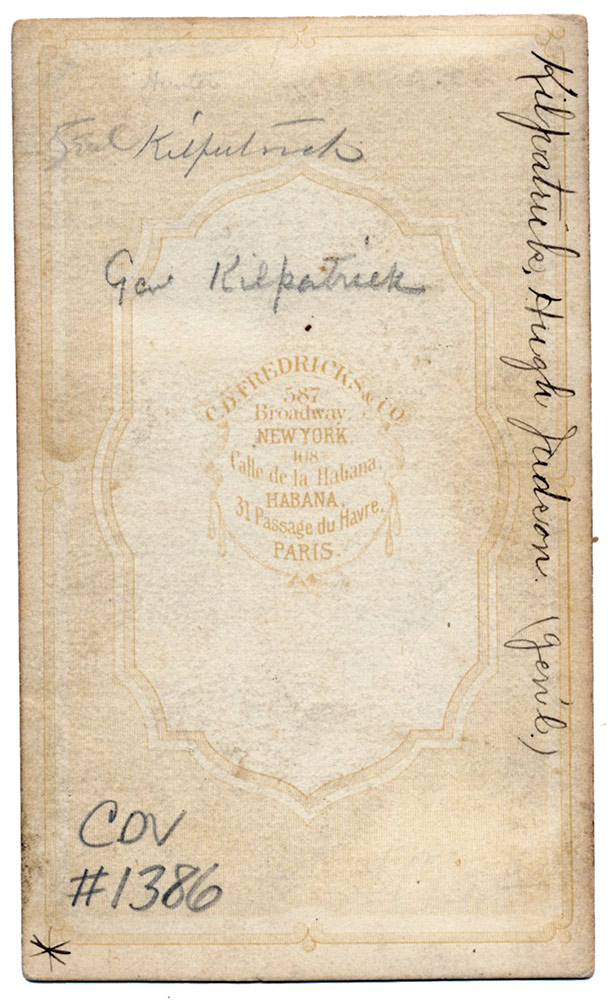 Hunter
Genl Kilpatrick
Gen Kilpatrick
C.D. FREDRICKS & CO
587
Broadway
NEW YORK
108
Calle de la Habana,
HABANA,
31 Passage du Havre.
PARIS.
CDV
#1386
*
Kilpatrick, Hugh Judson. (Gen'l.)